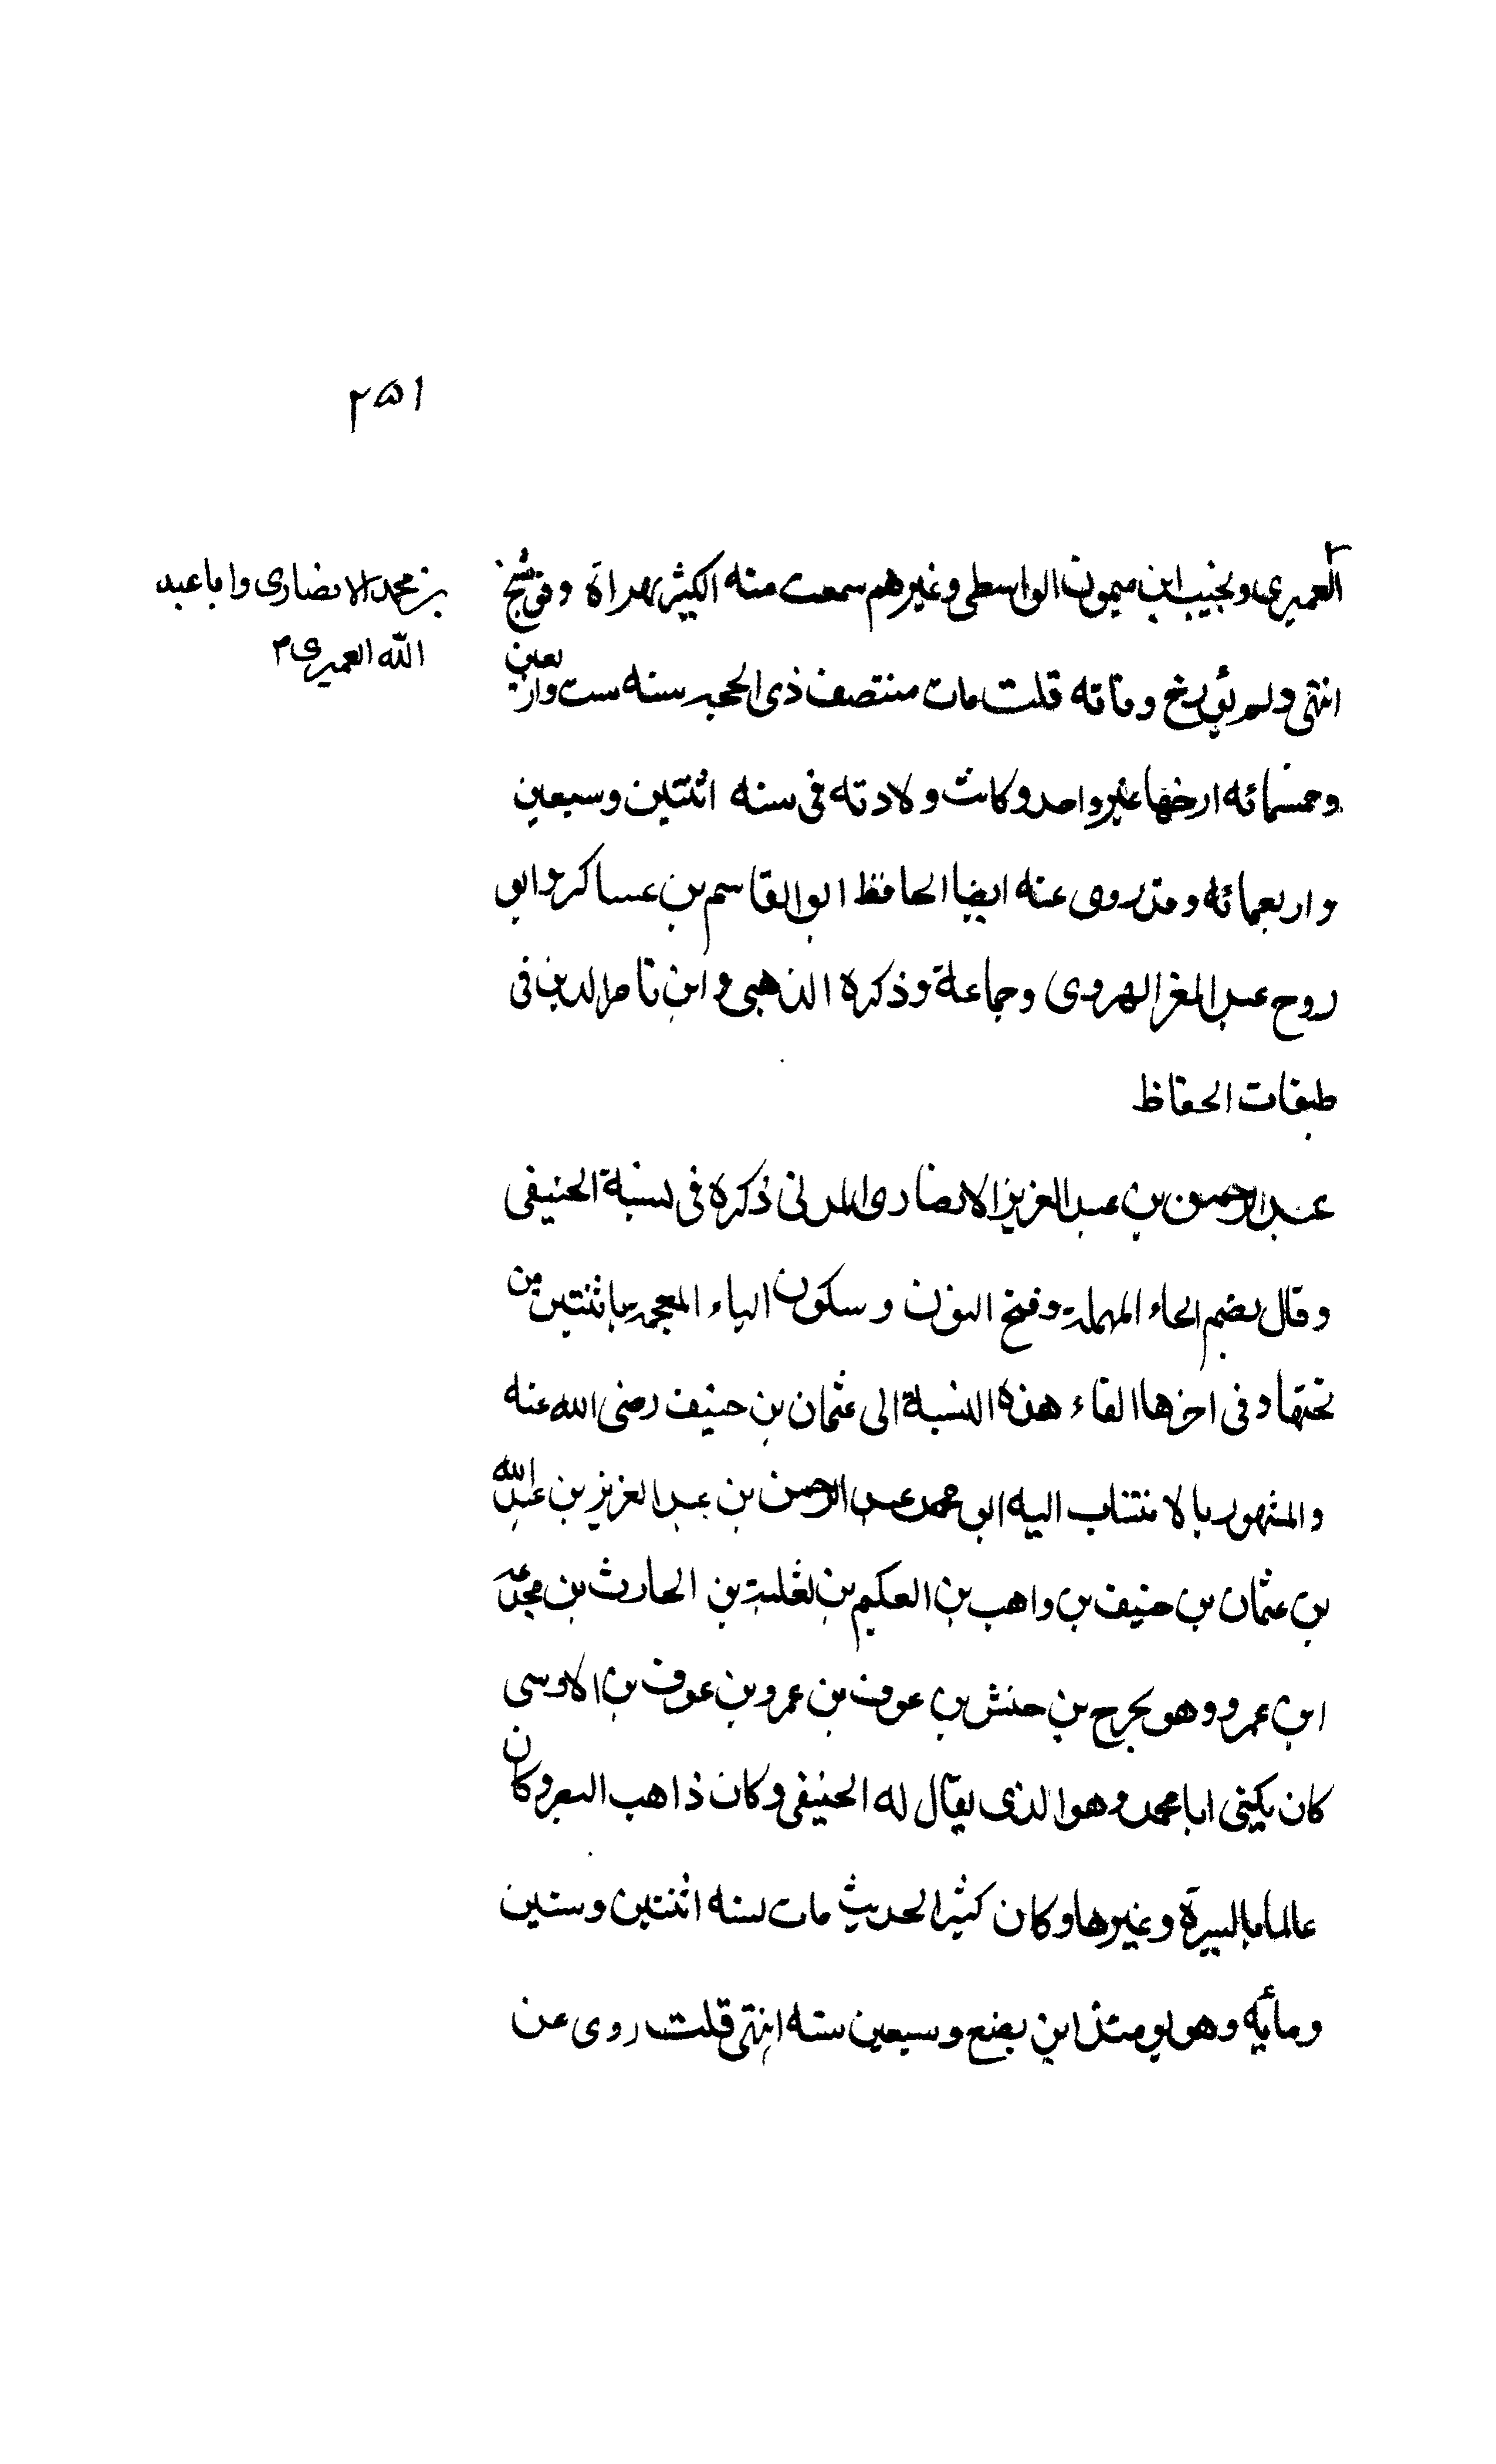 ٢٥١
العميرى ونجيب ابن ميمون الواسطى وغيرهم سمعت منه الكثير بهراة وفوشنج
بن محمد الانصارى وابا عبد
الله العميرى ٢
انتهى ولم يؤرخ وفاته قلت مات منتصف ذى الحجة سنه ست واربعين
وخمسمائه ارخها غير واحد وكانت ولادته فى سنه اثنتين وسبعين
واربعمائه وقد روى عنه ايضا الحافظ ابو القاسم بن عساكر وابو
روح عبد المعز الهروى وجماعة وذكره الذهبى وابن ناصر الدين فى
طبقات الحفاظ
عبد الرحمن بن عبد العزيز الانصارى المدنى ذكره فى نسبة الحنيفى
وقال بضم الحاء المهملة وفتح النون وسكون الياء المعجمه باثنتين من
تحتها وفى اخرها الفاء هذه النسبة الى عثمان بن حنيف رضى الله عنه
والمشهور بالانتساب اليه ابو محمد عبد الرحمن بن عبد العزيز بن عبد الله
بن عثمان بن حنيف بن واهب بن العكيم بن ثعلبة بن الحارث بن مجدعه
ابن عمرو وهو بحرج بن حنش بن عوف بن عمرو بن عوف بن الاوسى
كان يكنى ابا محمد وهو الذى يقال له الحنيفى وكان ذاهب البصر وكان
عالما بالسيرة وغيرها وكان كثير الحديث مات سنه اثنتين وستين
ومأيه وهو يومئذ ابن بضع وسبعين سنه انتهى قلت روى عن